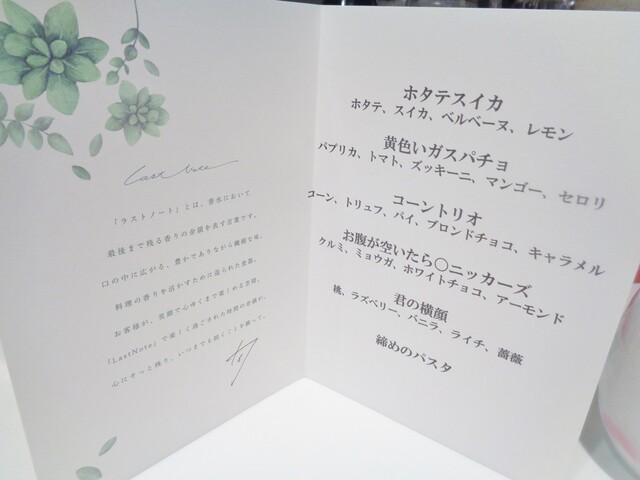 Last Note
「ラストノート」とは、香水において
最後まで残る香りの余韻を表す言葉です。
口の中に広がる、豊かでありながら繊細な味。
料理の香りを活かすために造られた食器。
お客様が、笑顔で心ゆくまで楽しめる空間。
『LastNote』で楽しく過ごされた時間の余韻が、
心にそっと残り、いつまでも続くことを願って。
ホタテスイカ
ホタテ、スイカ、ベルベーヌ、レモン
黄色いガスパチョ
パプリカ、トマト、ズッキーニ、マンゴー、セロリ
コーントリオ
コーン、トリュフ、パイ、ブロンドチョコ、キャラメル
お腹が空いたら〇ニッカーズ
クルミ、ミョウガ、ホワイトチョコ、アーモンド
君の横顔
桃、ラズベリー、バニラ、ライチ、薔薇
締めのパスタ